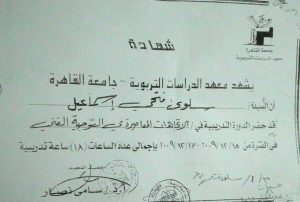 جامعة القاهرة
معهد الدراسات التربوية
شهادة
يشهد معهد الدراسات التربوية - جامعة القاهرة
أن السيد / سلوى فتحى إسماعيل
قد حضر الدورة التدريبية في / الاتجاهات المعاصرة في التوجيه الفنى
في الفترة من ١٥ / ٣ / ٢٠٠٩ - ١٧ / ٣ / ٢٠٠٩ بإجمالي عدد الساعات (١٨) ساعة تدريبية
أ.د/ سامى نصار